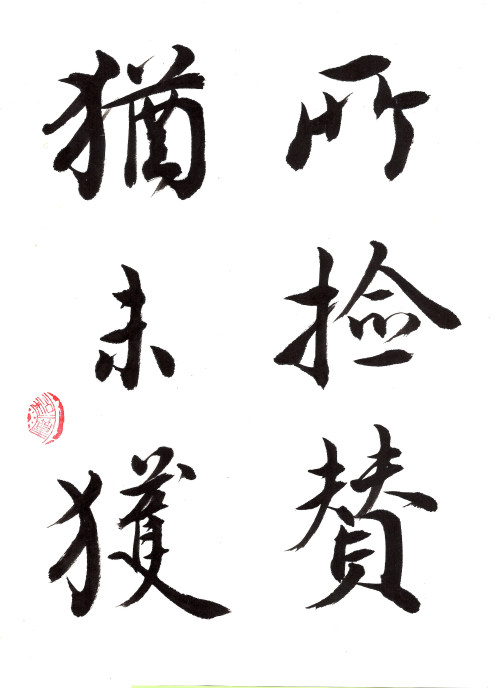 所撿賛
猶未獲